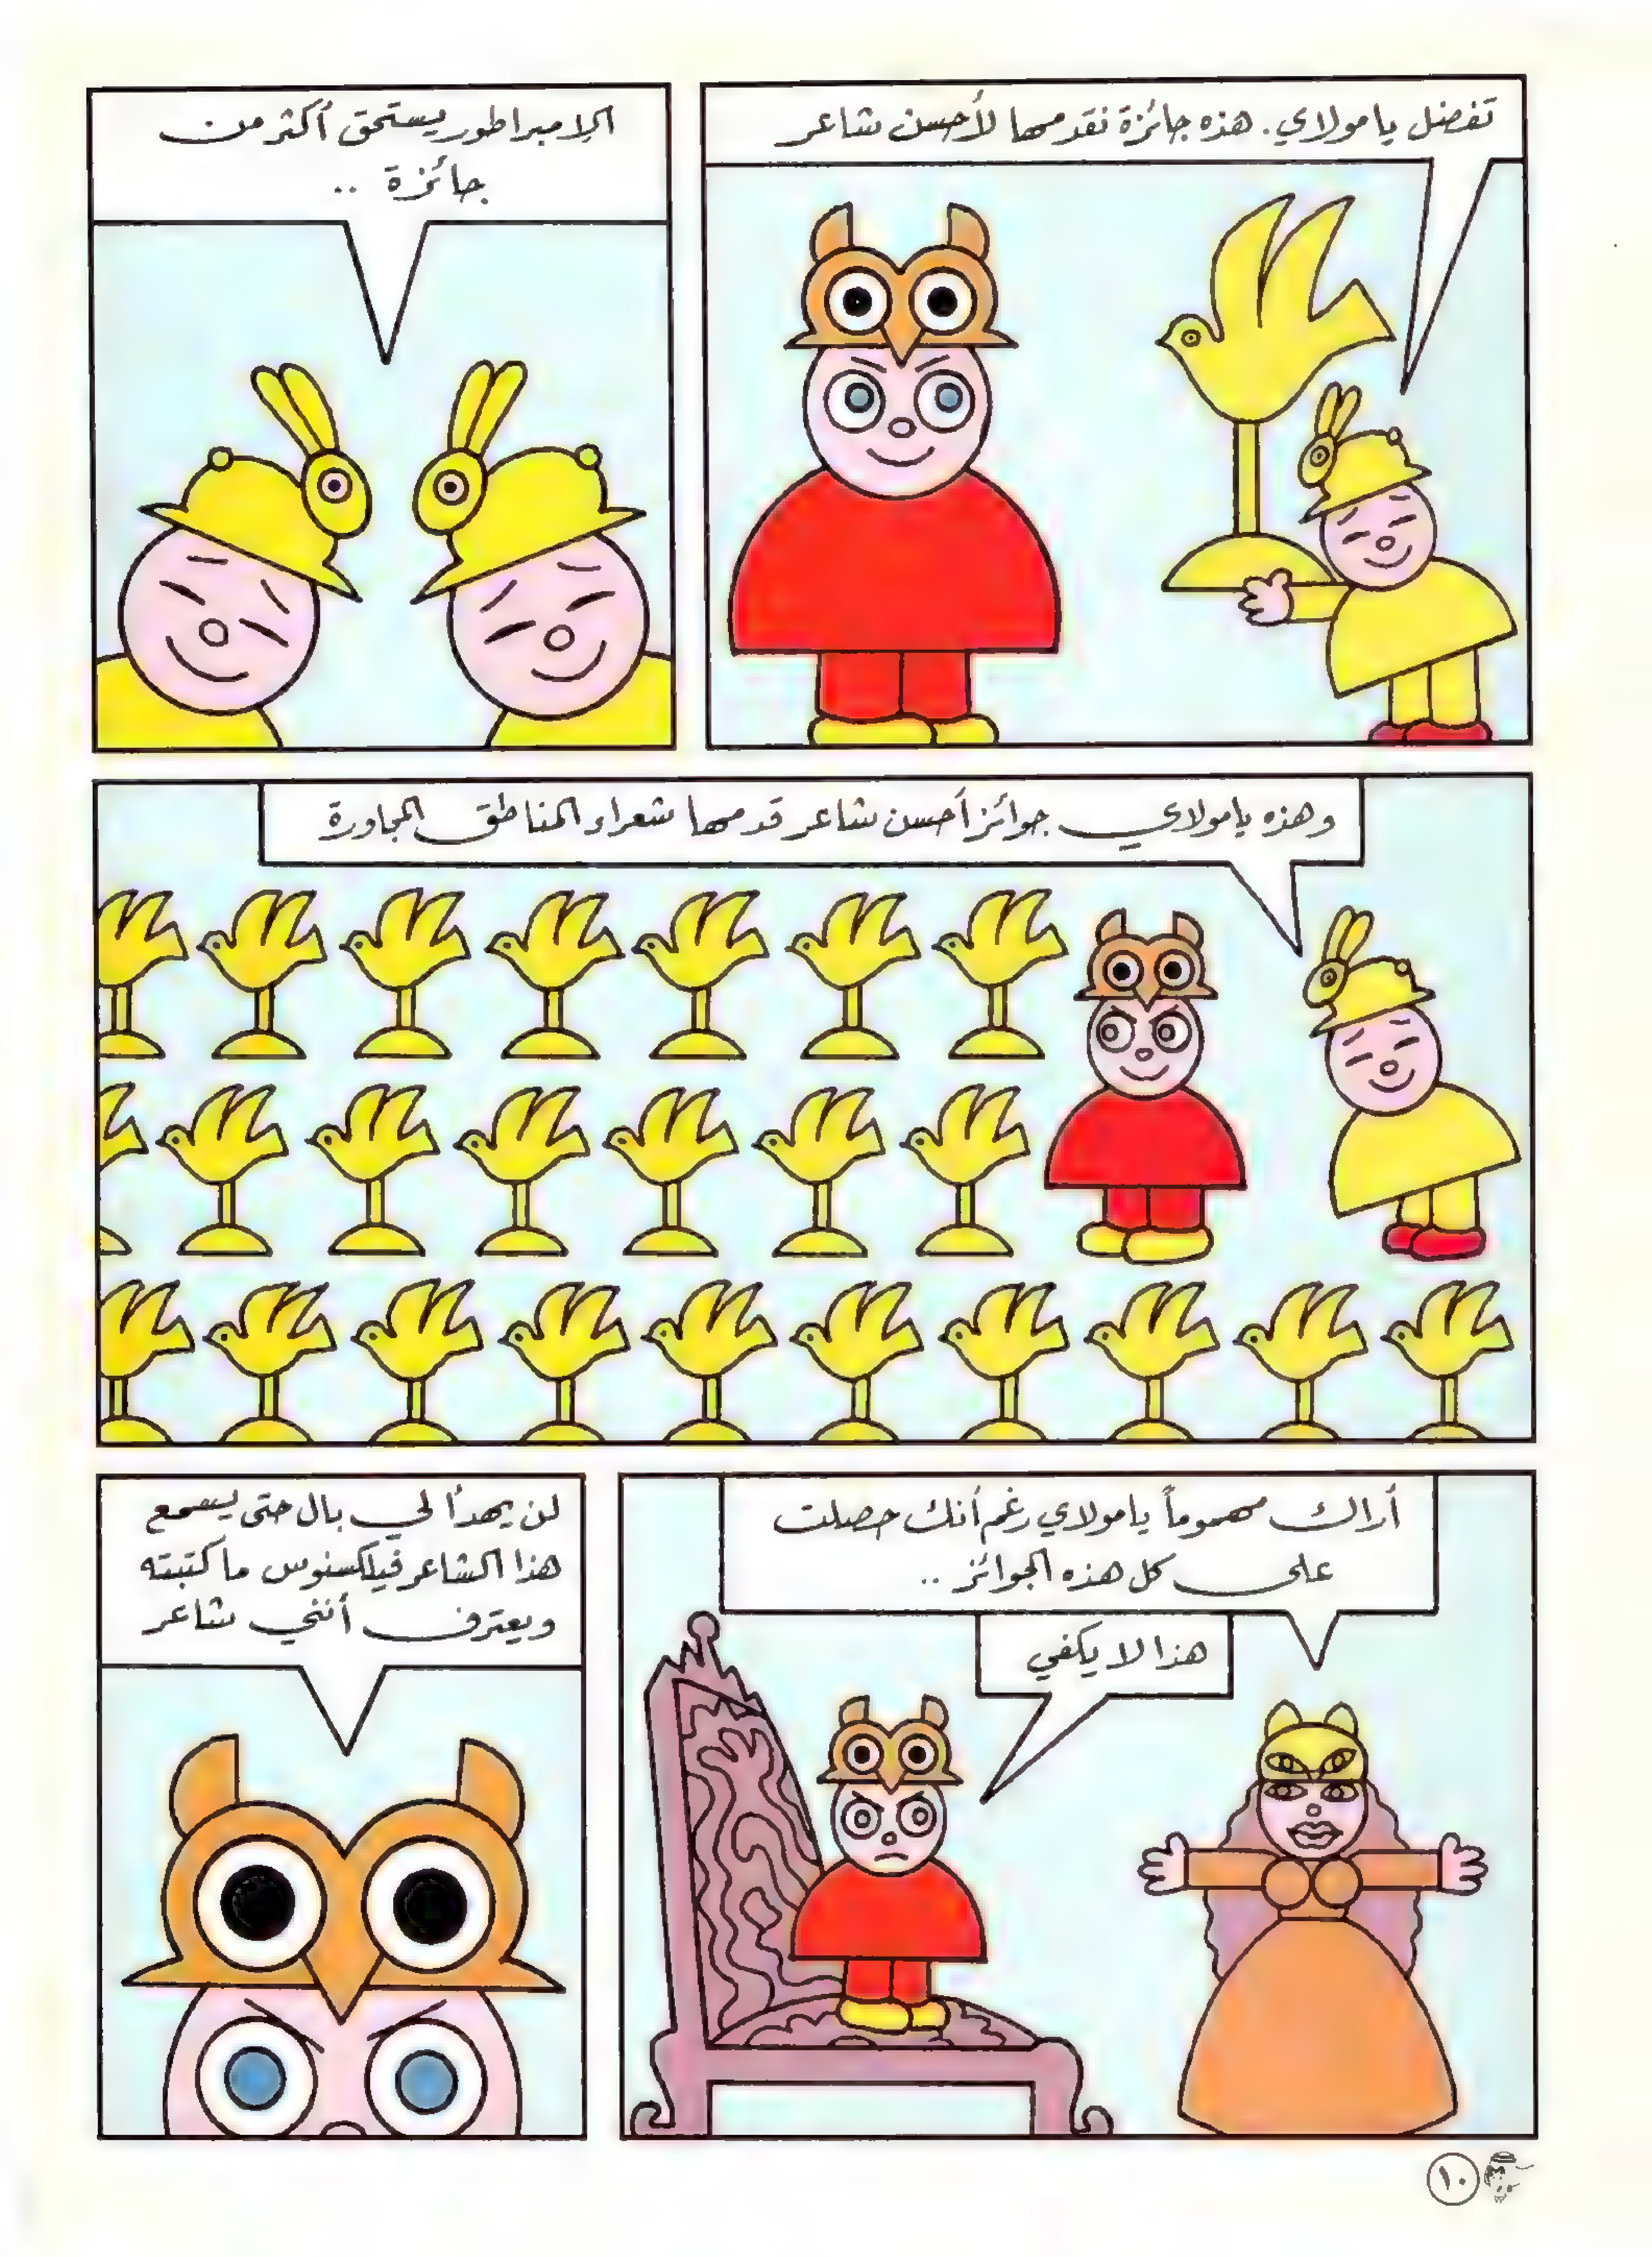 تفضل يا مولاي. هذه جائزة نقدمها لأحسن شاعر
الإمبراطور يستحق أكثر من
جائزة ..
وهذه يا مولاي جوائز أحسن شاعر قدمها شعراء المناطق المجاورة
أراك مهموماً يا مولاي رغم أنك حصلت
على كل هذه الجوائز ..
هذا لا يكفي
لن يهدأ لي بال حتى يسمع
هذا الشاعر فيلكسنوس ما كتبته
ويعترف أنني شاعر
١٠